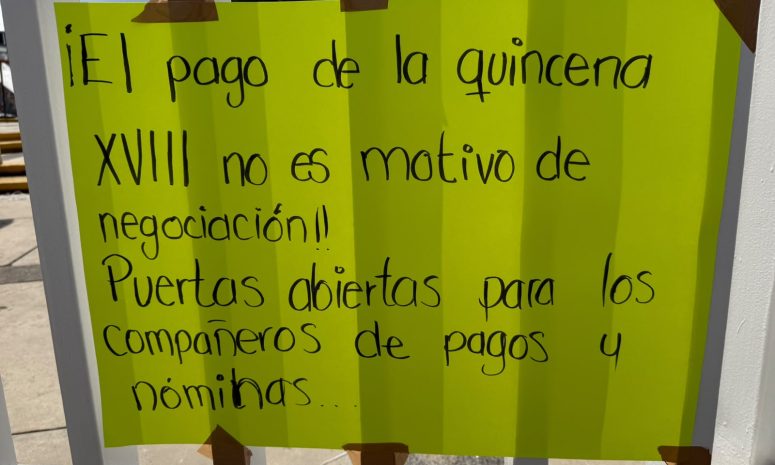 ¡El pago de la quincena
XVIII no es motivo de
negociación!!
Puertas abiertas para los
compañeros de pagos y
nóminas...